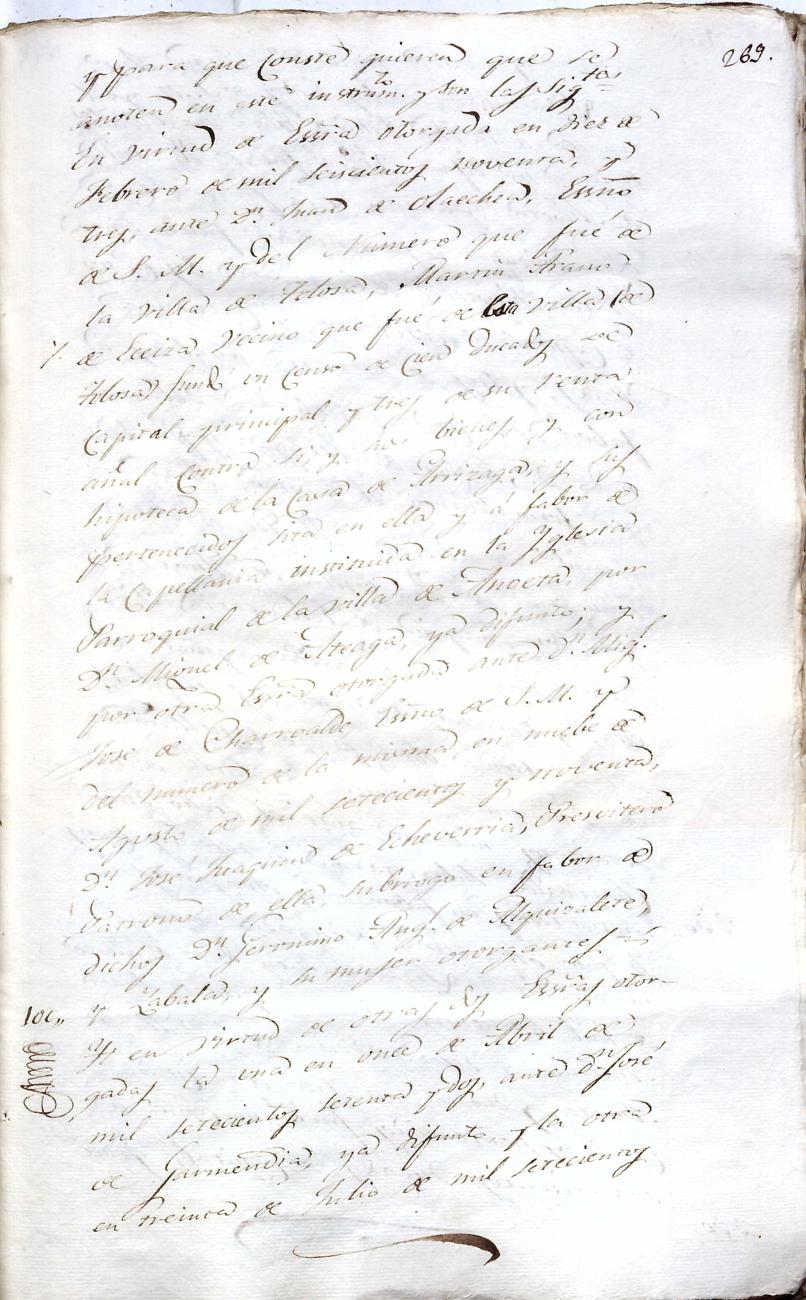 269.
y para que conste quieren que se
anoten en este instrum.to y son las sig.tes
En virtud de Essrã otorgada en diez de
Febrero de mil seiscientos noventa, y
tres, ante D.n Juan de Olaechea, Essño
de S. M. y del Numero que fué de
la villa de Tolosa, Martin Fran.co
de Eceiza vecino que fué de esta villa (de
Tolosa) fundó un Censo de Cien Ducados de
Capital principal y tres de su renta
añal contra si, y sus bienes, y con
hipoteca de la Casa de Arrizaga, y sus
pertenecidos sita en ella, y á fabor de
la Capellania instituida en la Yglesia
Parroquial de la villa de Anoeta, por
D.n Miguel de Ateaga, ya difunto; y
por otra Essrã otorgada ante D.n Mig.l
Jose de Charroalde, Essño de S. M. y
del numero de la misma, en nuebe de
Agosto de mil setecientos y noventa,
D.n José Juaquin de Echeverria, Presvitero
Patrono de ella, subrrogo en fabor de
dichos D.n Geronimo Ang.l de Alquizalete,
y Zabala, y su mujer otorgantes
100,,
Yt en virtud de otras dos Essrãs otor-
gadas la una en once de Abril de
mil setecientos setenta y dos, ante d.n José
de Garmendia, ya difunto, y la otra
en treinta de Julio de mil setecientos